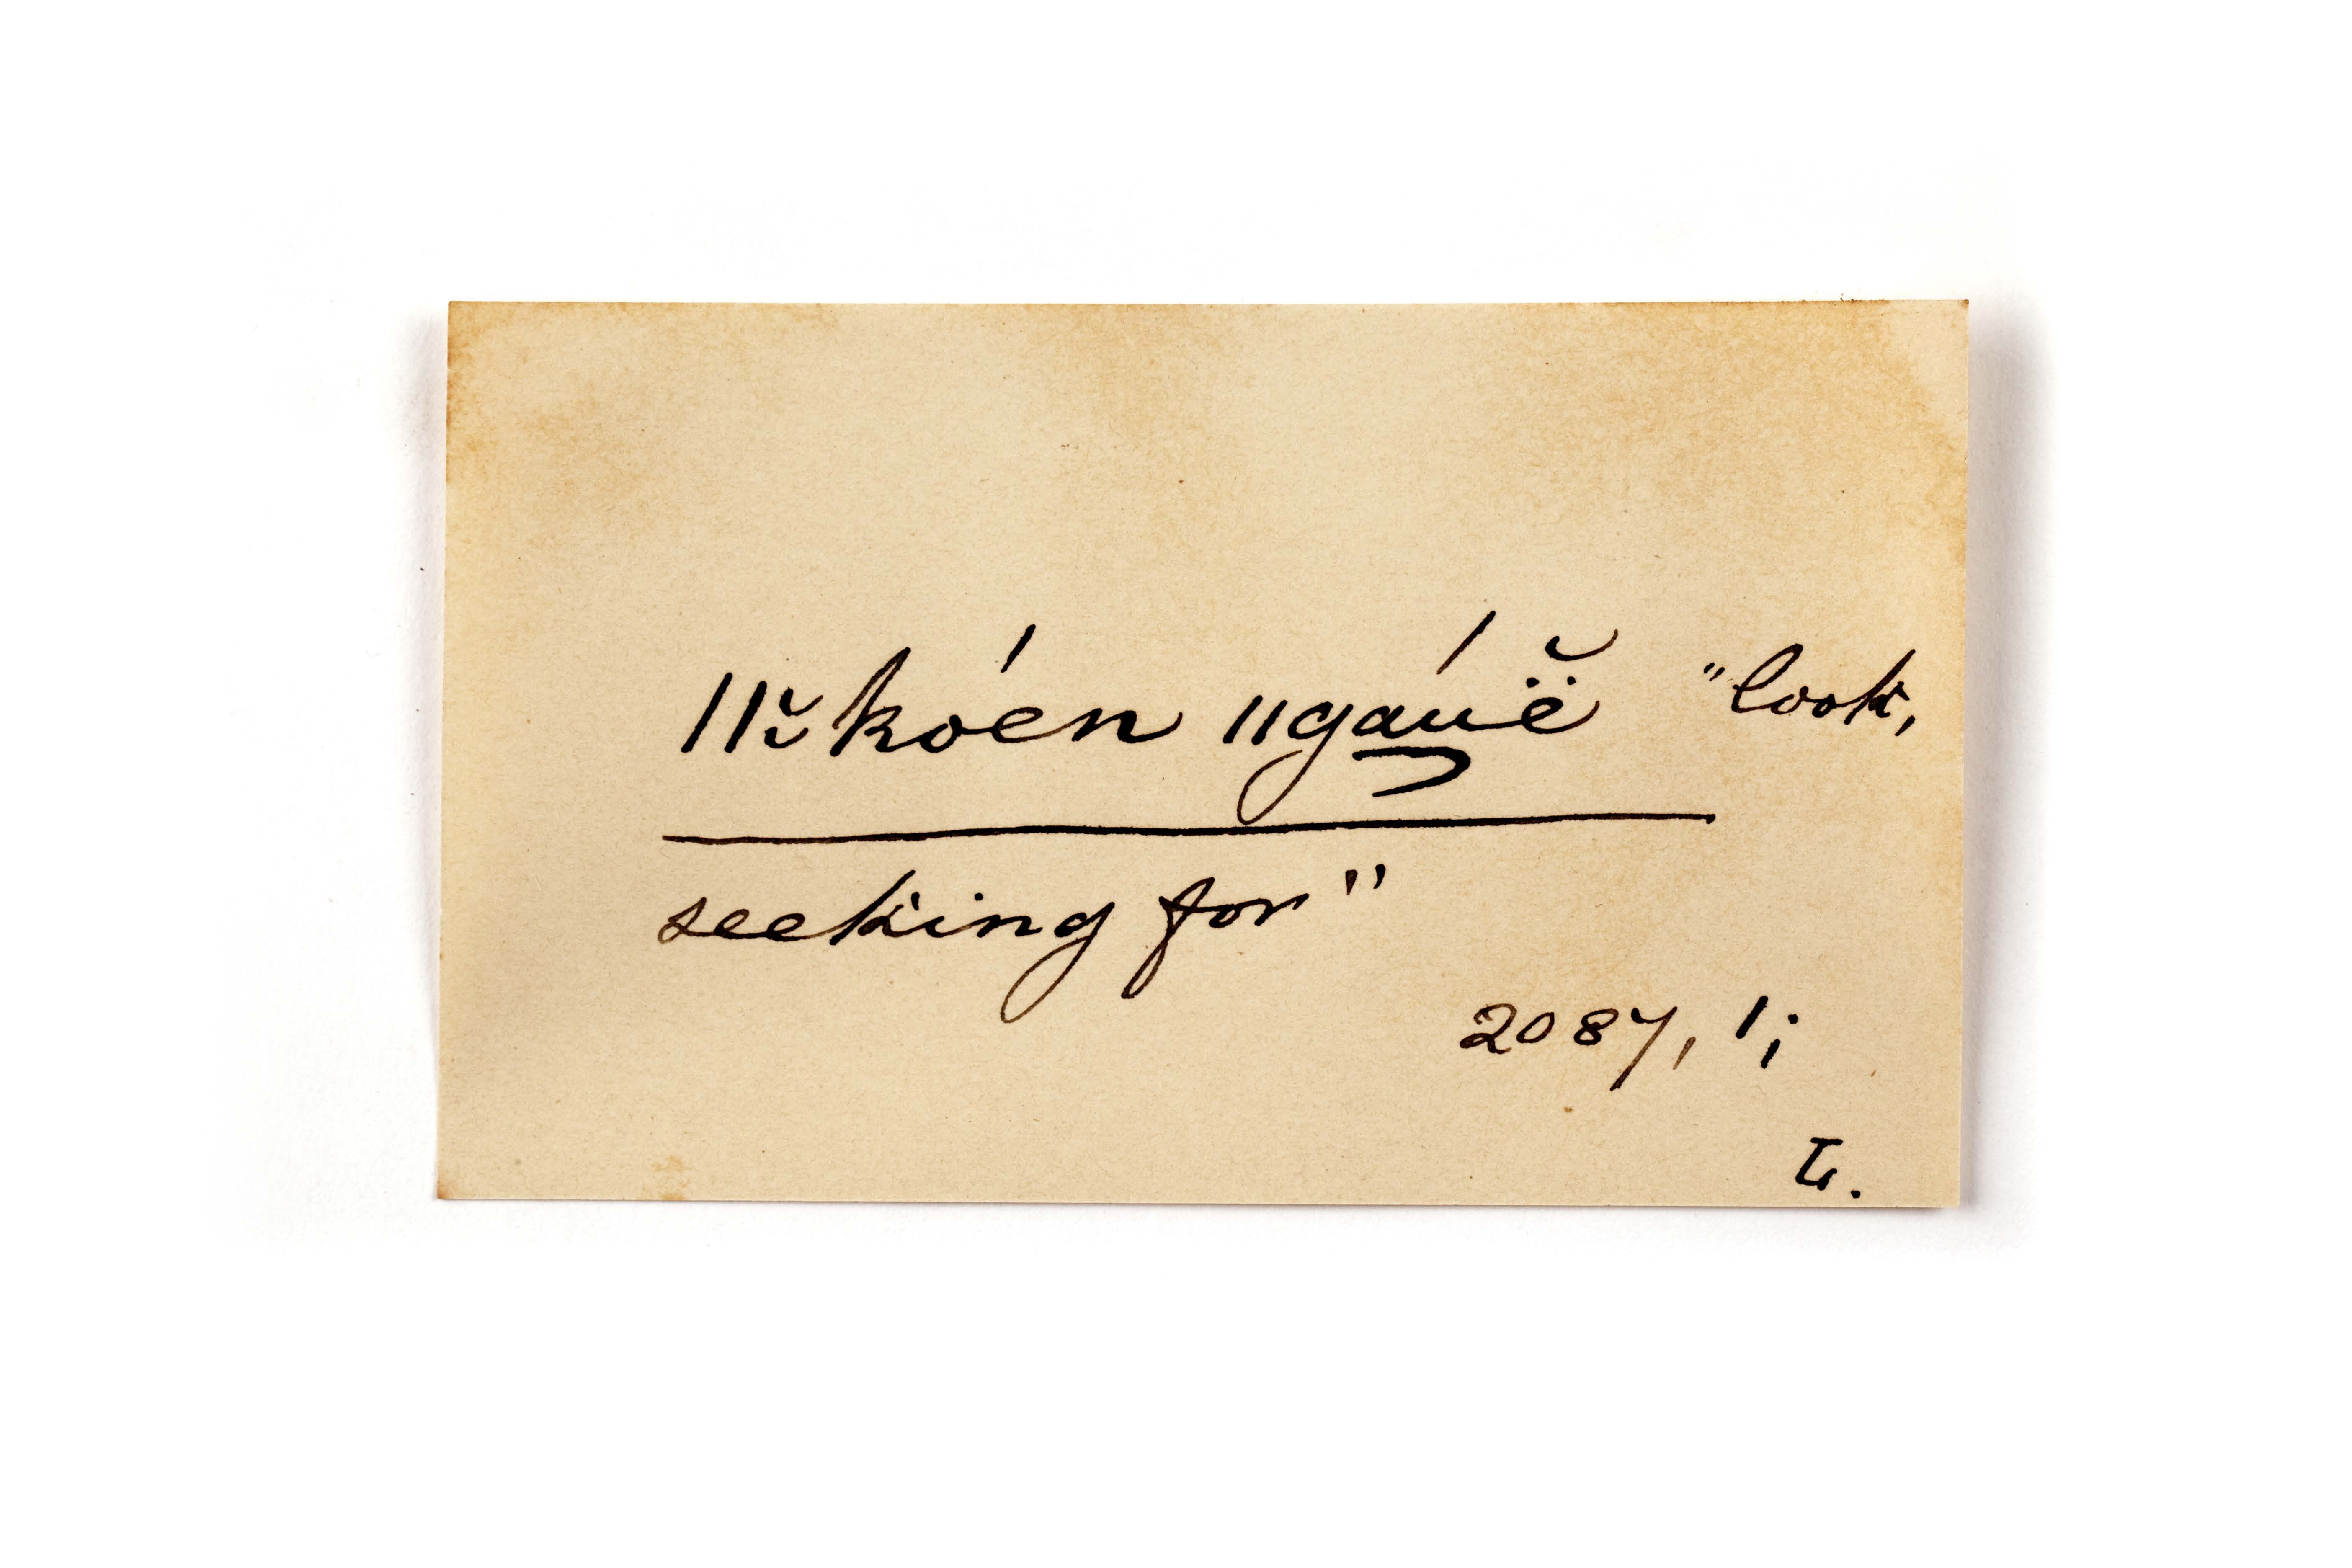 ||ĭkóen ||gáu̯ë̆ "look,
seeking for"
2087, 1;
L.